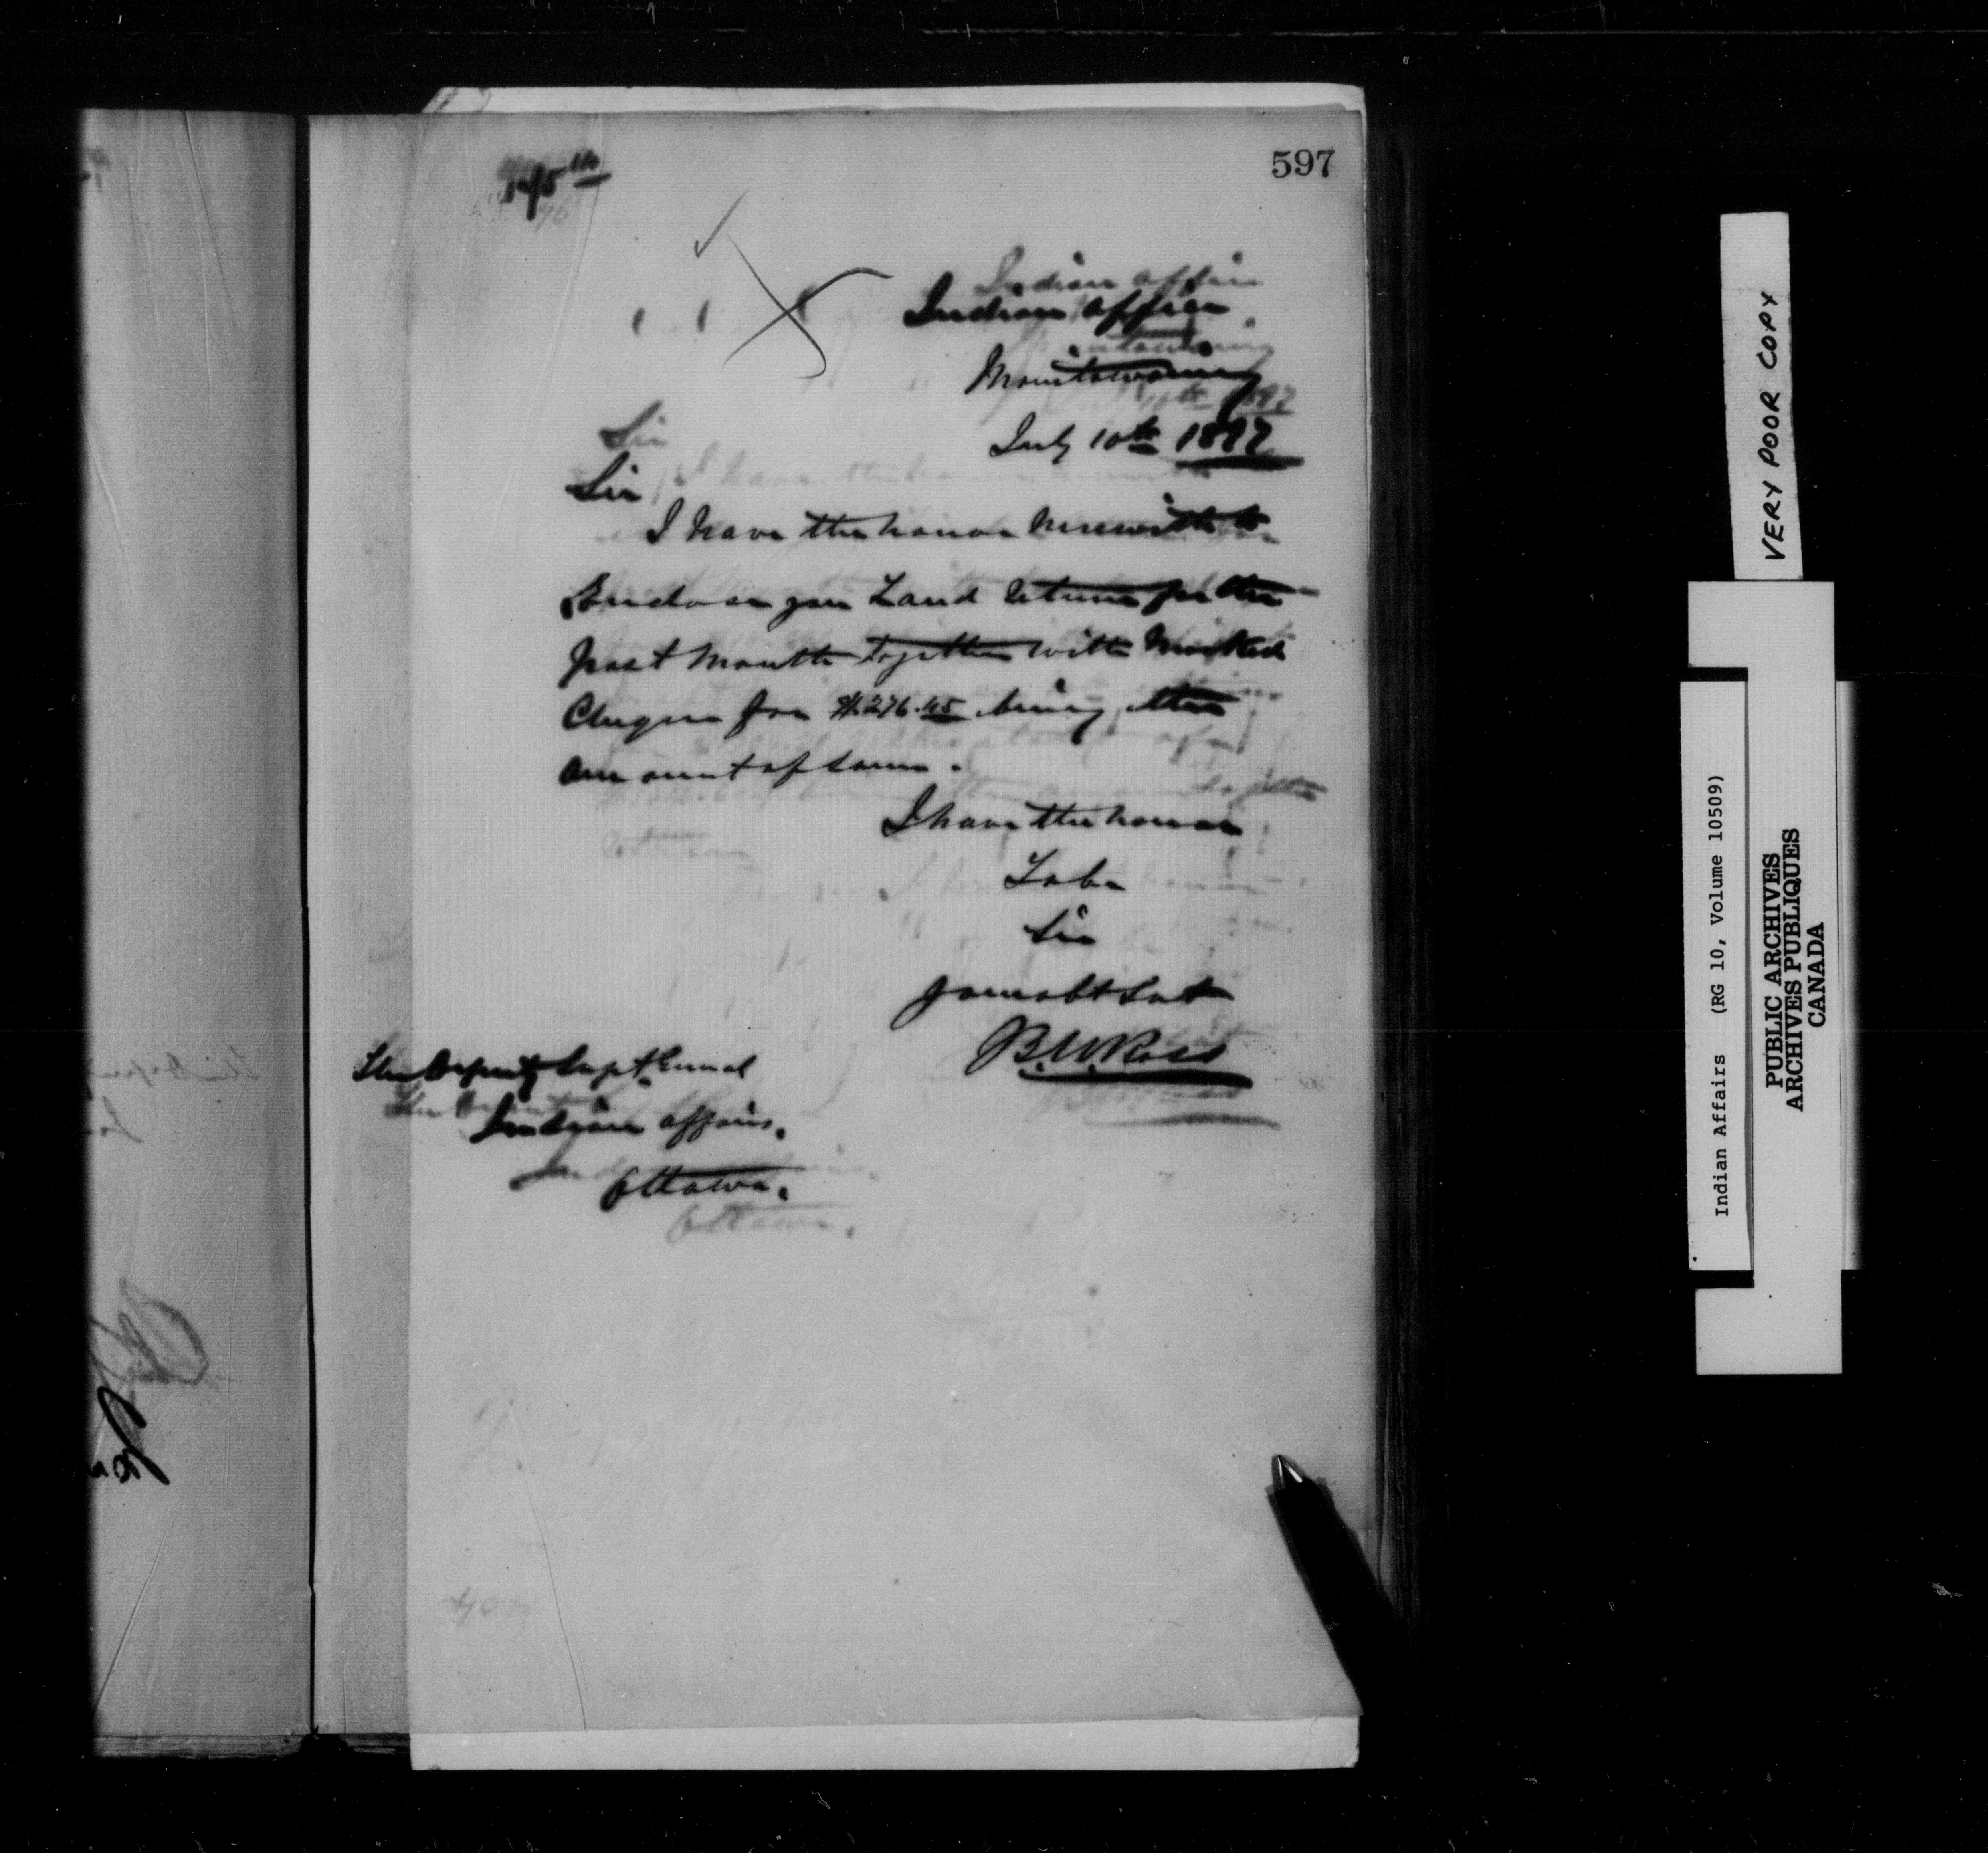 597
Indian Office
Manitowaning
July 10th 1897
Sir
I have the honor herewith to
Enclose you Land Returns for the
past Month together with Marked
Cheque for $276.45 being the
amount of same.
I have the honor
To be
Sir
Your obt Svt
B.W. Ross
The Deputy Supt. General
Indian Affairs.
Ottawa.
VERY POOR COPY
Indian Affairs (RG 10, Volume 10509)
PUBLIC ARCHIVES
ARCHIVES PUBLIQUES
CANADA